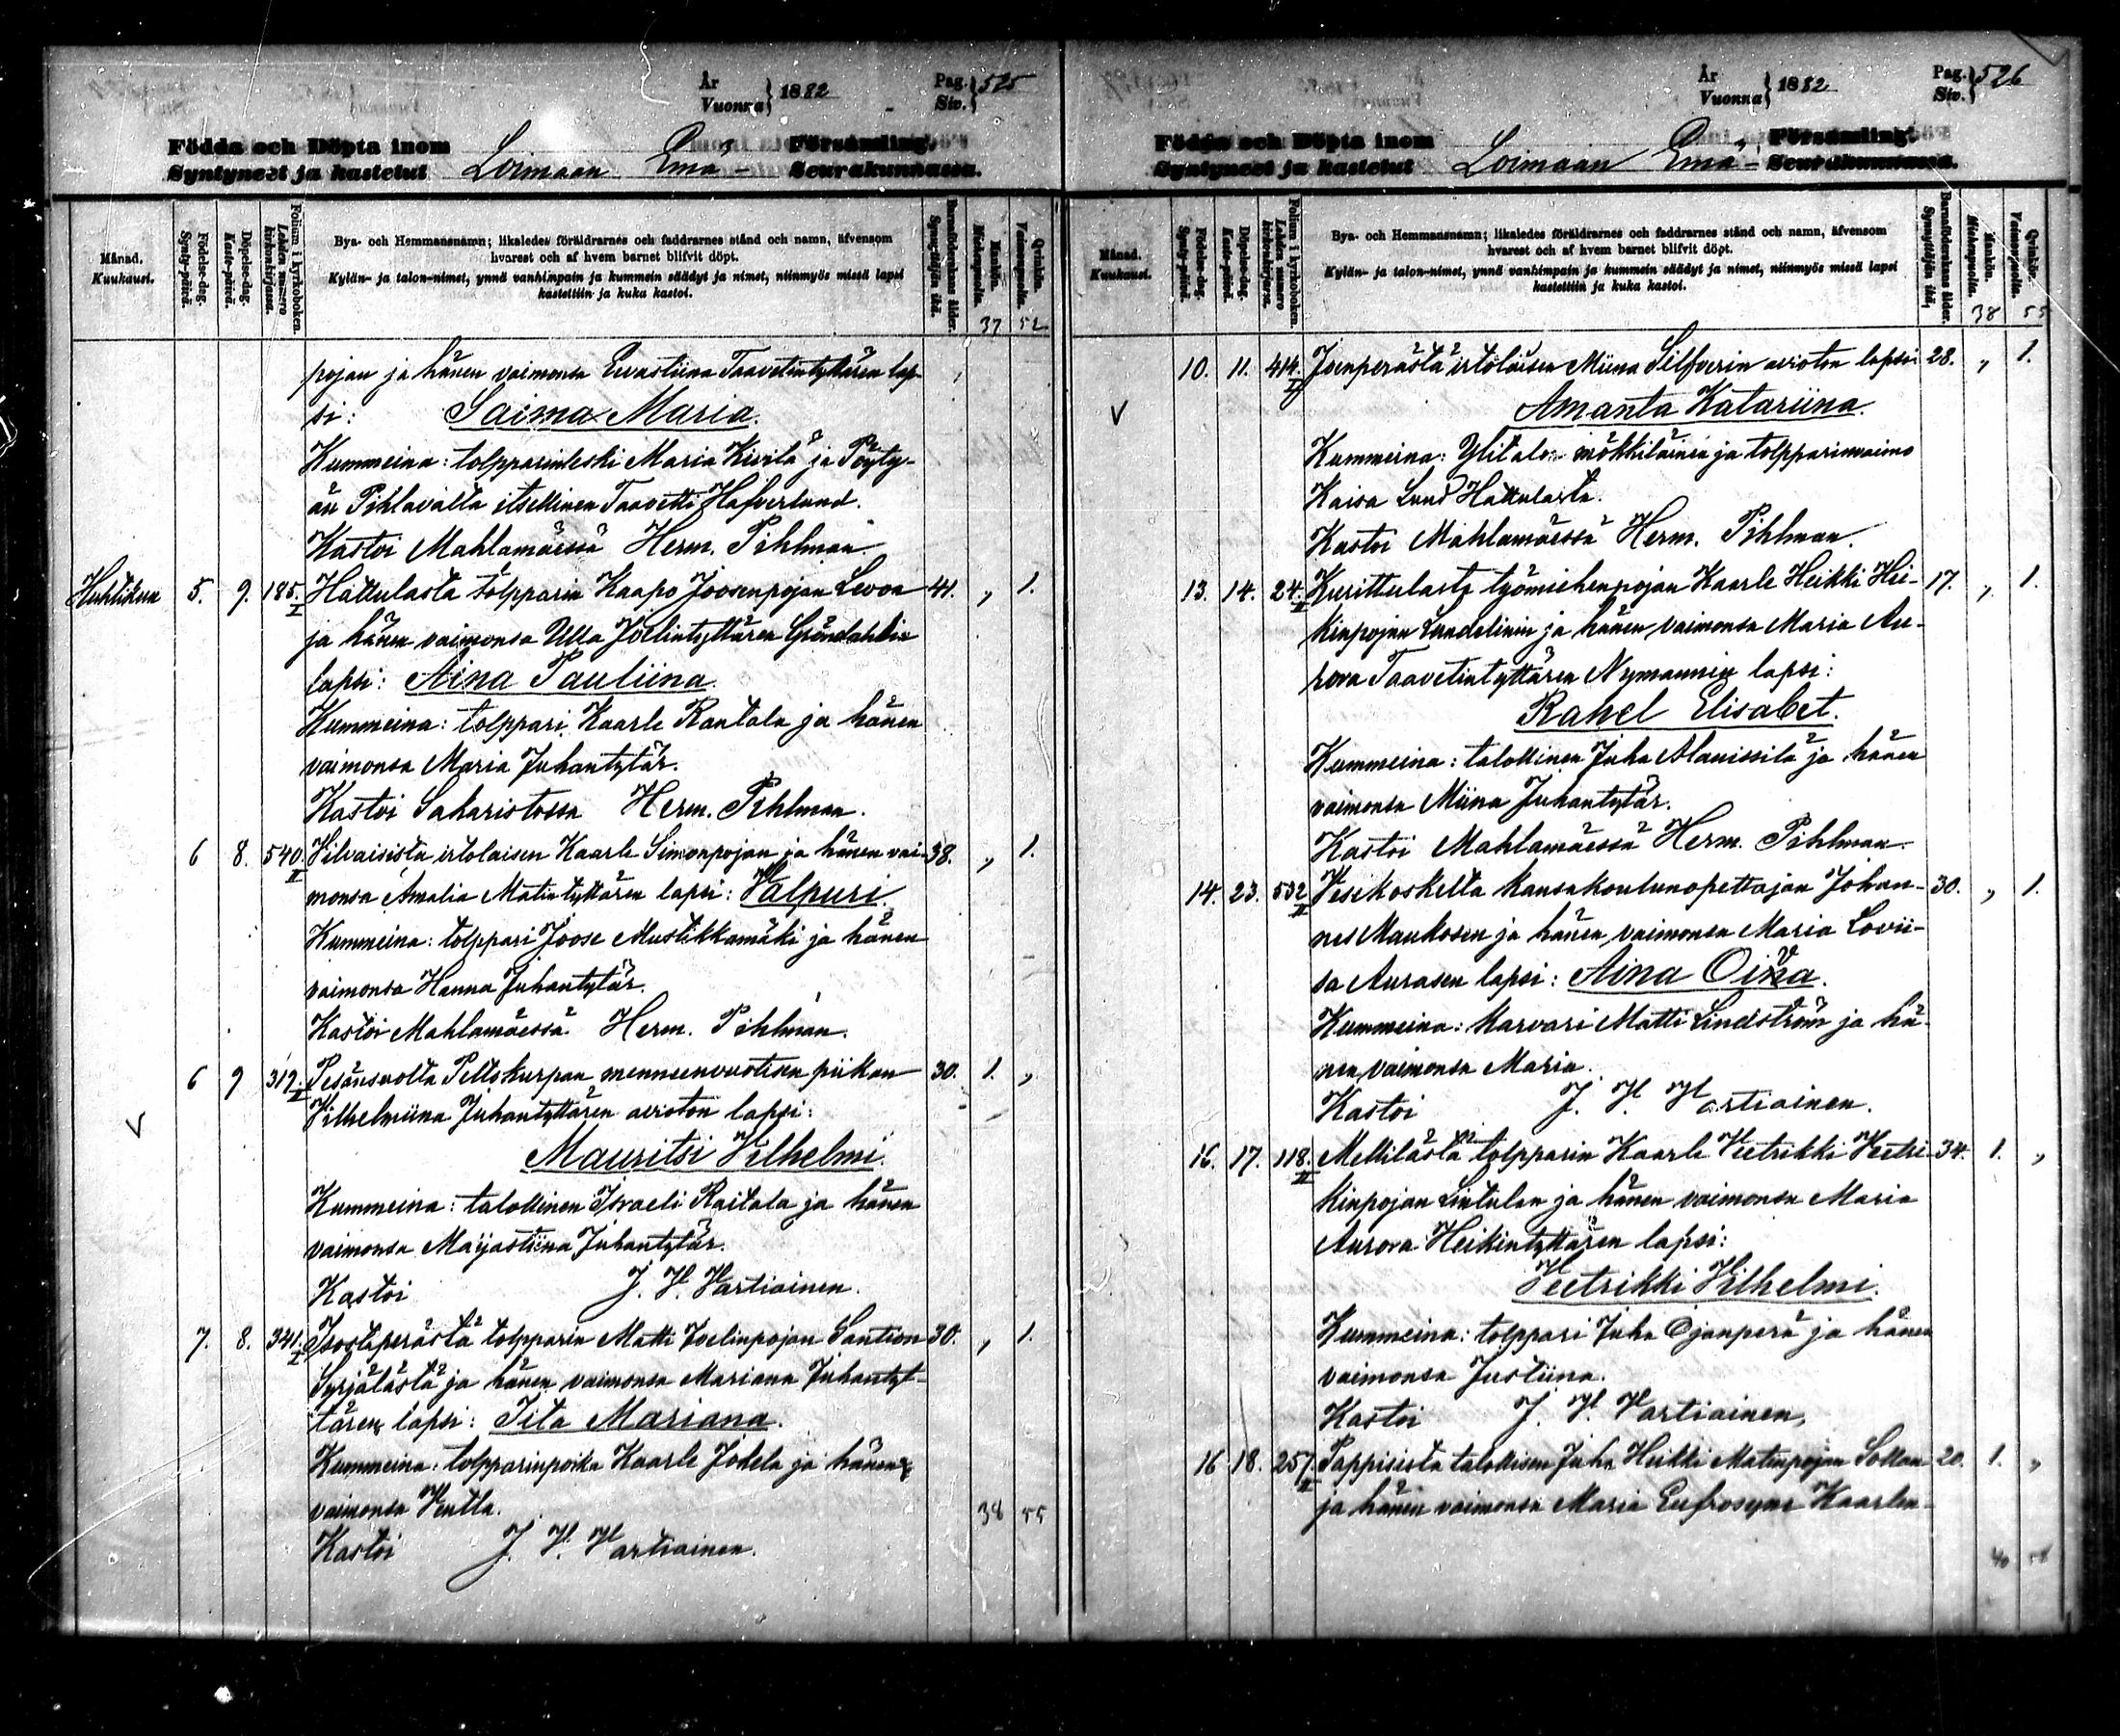 År
Vuonna } 1882
Pag.
Siv. } 525
Födda och Döpta inom
Syntyneet ja kastetut
Loimaan Emä-
Församling.
Seurakunnassa.
Månad.
Kuukausi.
Födelse-dag.
Synty-päivä.
Döpelse-dag.
Kaste-päivä.
Folium i kyrkoboken.
Lehden numero
kirkonkirjassa.
Bya- och Hemmansnamn; likaledes föräldrarnes och faddrarnes stånd och namn, äfvensom
hvarest och af hvem barnet blifvit döpt.
Kylän- ja talon-nimet, ynnä vanhimpain ja kummein säädyt ja nimet, niinmyös missä lapsi
kastettiin ja kuka kastoi.
Barnaföderskans ålder.
Synnyttäjän ikä.
Mankön.
Miehenpuolta.
Qvinkön.
Vaimonpuolta.
37 52
pojan ja hänen vaimonsa Eevastiina Taavetintyttären lap-
si: Saima Maria.
Kummeina: tolpparinleski Maria Kivilä ja Pöyty-
än Pihlavalta itsellinen Taavetti Hafverlund.
Kastoi Mahlamäessä Herm. Pihlman
Huhtikuu 5. 9. 185. I Hattulasta tolpparin Kaapo Joosenpojan Levon 41. „ 1.
ja hänen vaimonsa Ulla Joelintyttären Gröndahlin
lapsi: Aina Pauliina.
Kummeina: tolppari Kaarle Rantala ja hänen
vaimonsa Maria Juhantytär.
Kastoi Sahavistossa Herm. Pihlman.
6 8. 540. II Vilvaisista irtolaisen Kaarle Simonpojan ja hänen vai- 38. „ 1.
monsa Amalia Matintyttären lapsi: Valpuri.
Kummeina: tolppari Joose Mustikkamäki ja hänen
vaimonsa Hanna Juhantytär.
Kastoi Mahlamäessä Herm. Pihlman.
6 9 319. II Pesänsuolta Peltokurpan menneenvuotisen piikan 30. 1. „
Vilhelmiina Juhantyttären avioton lapsi:
V
Mauritsi Vilhelmi.
Kummeina: talollinen Israeli Raitala ja hänen
vaimonsa Maijastiina Juhantytär.
Kastoi J. V. Vartiainen.
7. 8. 341. I Isostaperästä tolpparin Matti Joelinpojan Santion 30. „ 1.
Syrjälästä ja hänen vaimonsa Mariana Juhantyt-
tären lapsi: Iita Mariana.
Kummeina: tolpparinpoika Kaarle Jokela ja hänen
vaimonsa Ventla.
38 55
Kastoi J. V. Vartiainen.
År
Vuonna } 1882
Pag.
Siv. } 526
Födda och Döpta inom
Syntyneet ja kastetut
Loimaan Emä-
Församling.
Seurakunnassa.
Månad.
Kuukausi.
Födelse-dag.
Synty-päivä.
Döpelse-dag.
Kaste-päivä.
Folium i kyrkoboken.
Lehden numero
kirkonkirjassa.
Bya- och Hemmansnamn; likaledes föräldrarnes och faddrarnes stånd och namn, äfvensom
hvarest och af hvem barnet blifvit döpt.
Kylän- ja talon-nimet, ynnä vanhimpain ja kummein säädyt ja nimet, niinmyös missä lapsi
kastettiin ja kuka kastoi.
Barnaföderskans ålder.
Synnyttäjän ikä.
Mankön.
Miehenpuolta.
Qvinkön.
Vaimonpuolta.
38 55
10. 11. 414. II Joenperästä irtolaisen Miina Silfverin avioton lapsi 28. „ 1.
V
Amanta Katariina.
Kummeina: Ylitalon mökkiläinen ja tolpparinvaimo
Kaisa Lund Hattulasta.
Kastoi Mahlamäessä Herm. Pihlman.
13. 14. 24. II Kurittulasta työmiehenpojan Kaarle Heikki Hei- 17. „ 1.
kinpojan Lundelinin ja hänen vaimonsa Maria Au-
rora Taavetintyttären Nymannin lapsi:
Rahel Elisabet.
Kummeina: talollinen Juha Alanissilä ja hänen
vaimonsa Miina Juhantytär.
Kastoi Mahlamäessä Herm. Pihlman.
14. 23. 532 II Vesekoskelta kansakoulunopettajan Johan- 30. „ 1.
nes Maukosen ja hänen vaimonsa Maria Lovii-
sa Aurasen lapsi: Aina Oiva.
Kummeina: karvari Matti Lindström ja hä-
nen vaimonsa Maria.
Kastoi J. V. Vartiainen.
16. 17. 118. II Mellilästä tolpparin Kaarle Veetrikki Veetri- 34. 1. „
kinpojan Lintulan ja hänen vaimonsa Maria
Aurora Heikintyttären lapsi:
Veetrikki Vilhelmi.
Kummeina: tolppari Juha Ojanperä ja hänen
vaimonsa Justiina.
Kastoi J. V. Vartiainen,
16 18. 257. II Pappisista talollisen Juha Heikki Matinpojan Sollan 20. 1. „
ja hänen vaimonsa Maria Eufrosyne Kaarlen-
40 55